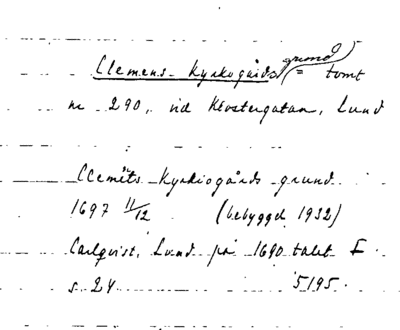 Clemens Kyrkogårds grund = tomt
nr 290, vid Klostergatan, Lund
Clemēts Kyrkiogårds grund
1697 11/12 (bebyggd 1932)
Carlqvist, Lund på 1690 talet I
s. 24 5195.